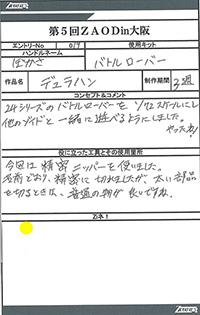 第5回ZAODin大阪
エントリーNo 017 使用キット
ハンドルネーム
ぽかさ バトルローバー
作品名 デュラハン 制作期間 3週
コンセプト&コメント
24シリーズのバトルローバーを 1/72スケールにし
他のゾイドと一緒に遊べるようにしました。
やったね!
役に立った工具とその使用箇所
今回は精密ニッパーを使いました。
名前どおり、精密に切れましたが、太い部品
を切るときは、普通の物が良いですね。
ZAODS